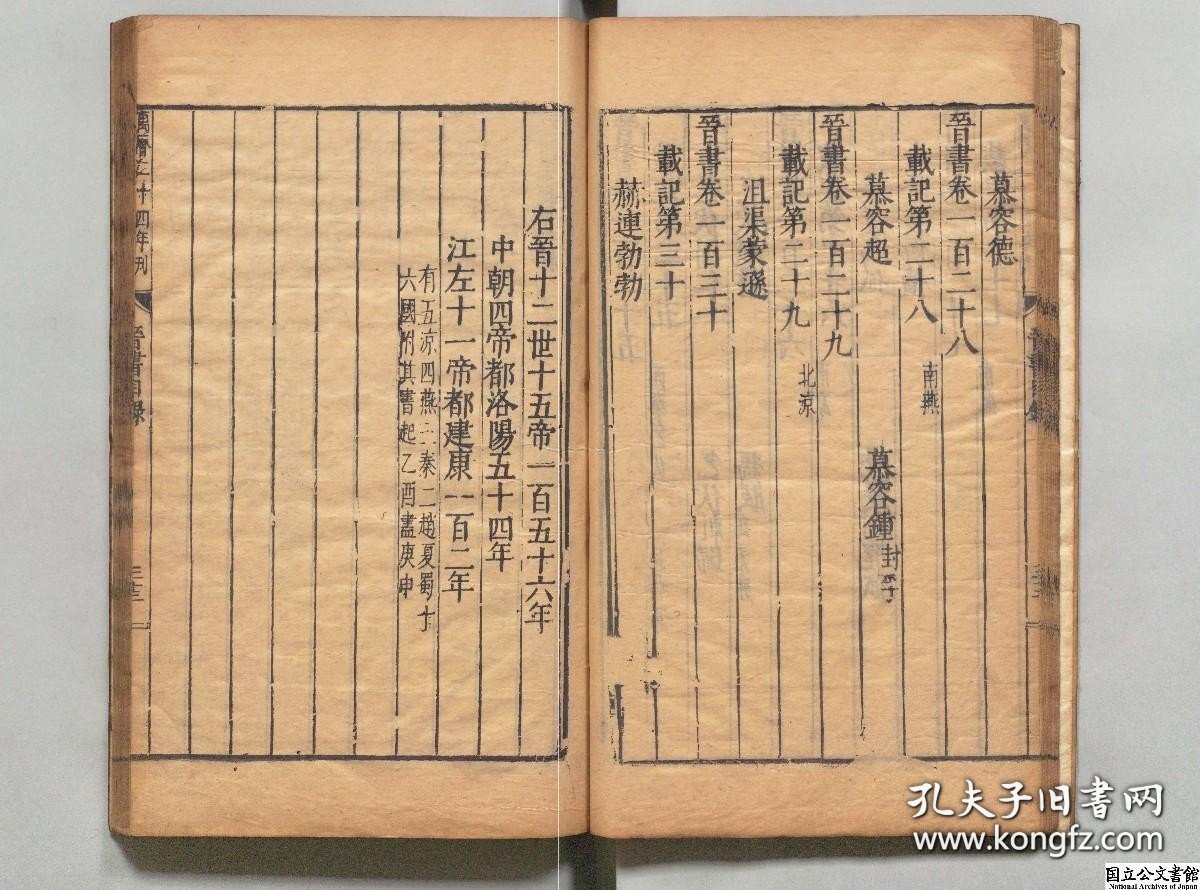 慕容德
晉書卷一百二十八
載記第二十八 南燕
慕容超 慕容鍾 封孚
晉書卷一百二十九
載記第二十九 北凉
沮渠蒙遜
晉書卷一百三十
載記第三十
赫連勃勃
右晉十二世十五帝一百五十六年
中朝四帝都洛陽五十四年
江左十一帝都建康一百二年
有五凉四燕三秦二趙夏蜀十
六國附其書起乙酉盡庚申
晉書目錄
孔夫子旧书网
www.kongfz.com
国立公文書館
National Archives of Japan